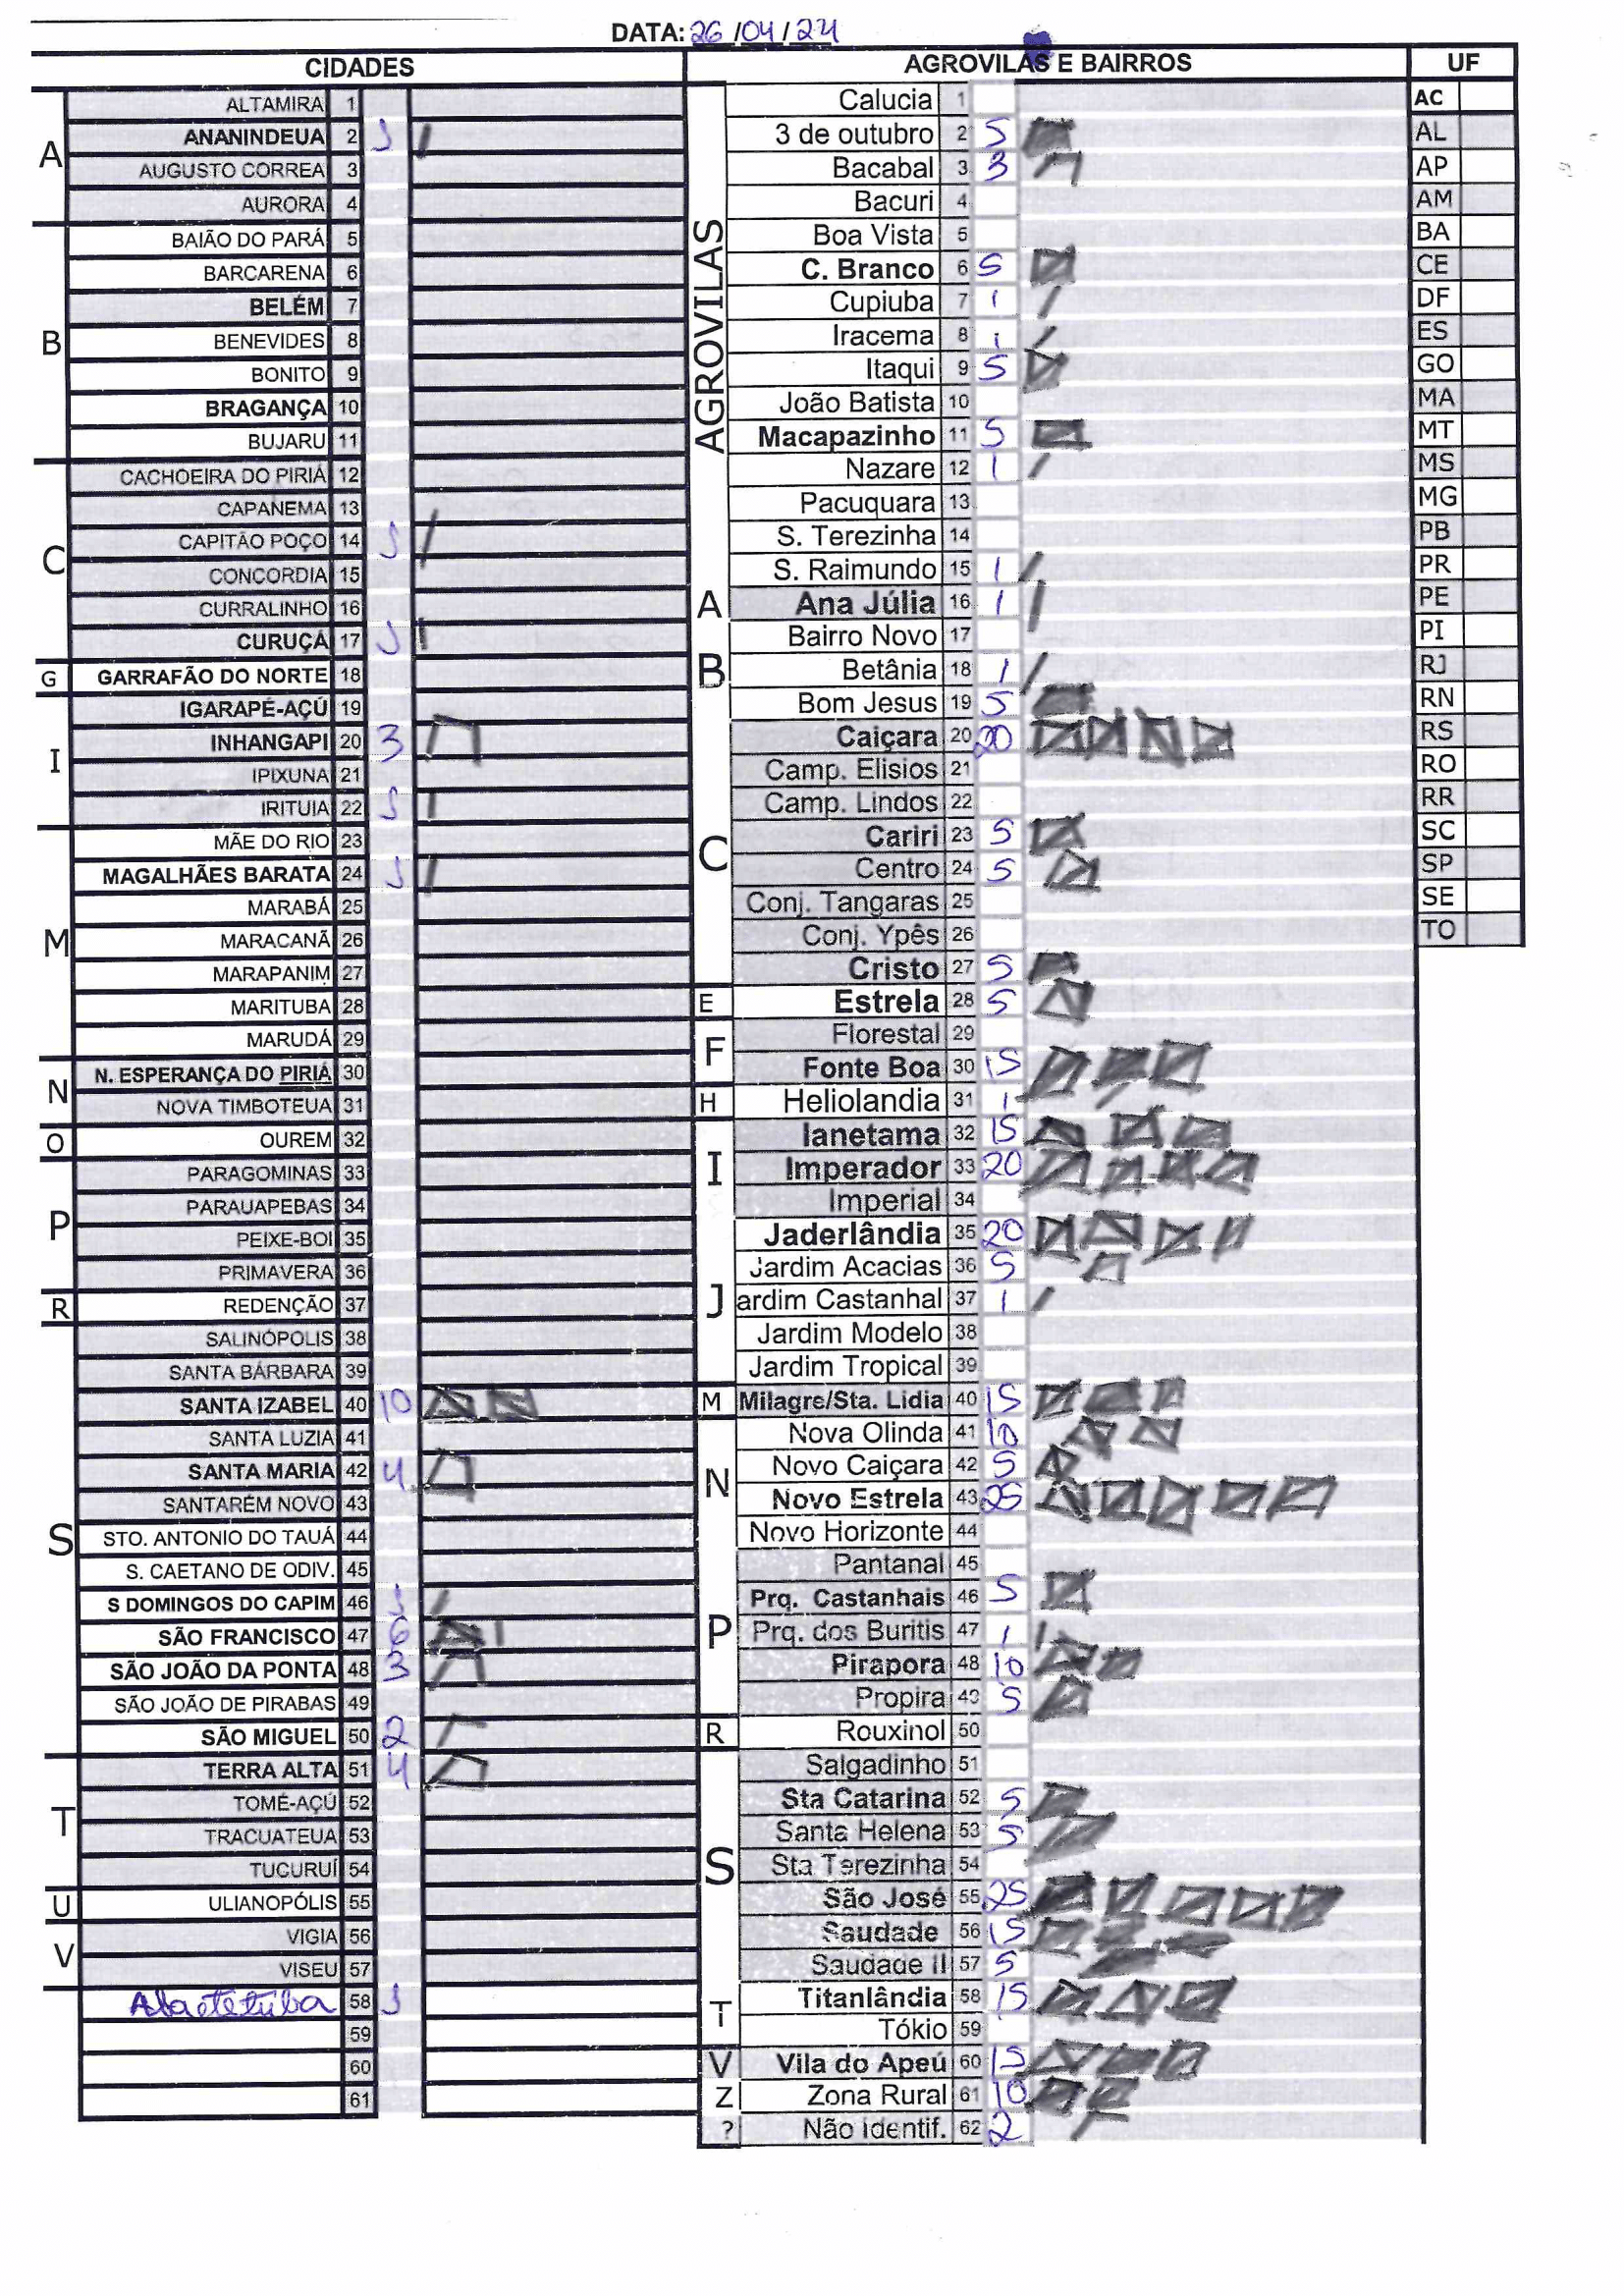 DATA: 26/04/24
CIDADES
A
ALTAMIRA 1
ANANINDEUA 2 1
AUGUSTO CORREA 3
AURORA 4
B
BAIÃO DO PARÁ 5
BARCARENA 6
BELÉM 7
BENEVIDES 8
BONITO 9
BRAGANÇA 10
BUJARU 11
C
CACHOEIRA DO PIRIÁ 12
CAPANEMA 13
CAPITÃO POÇO 14 1
CONCORDIA 15
CURRALINHO 16
CURUÇÁ 17 1
G
GARRAFÃO DO NORTE 18
I
IGARAPÉ-AÇÚ 19
INHANGAPI 20 3
IPIXUNA 21
IRITUIA 22 1
M
MÃE DO RIO 23
MAGALHÃES BARATA 24 1
MARABÁ 25
MARACANÃ 26
MARAPANIM 27
MARITUBA 28
MARUDÁ 29
N
N. ESPERANÇA DO PIRIÁ 30
NOVA TIMBOTEUA 31
O
OUREM 32
P
PARAGOMINAS 33
PARAUAPEBAS 34
PEIXE-BOI 35
PRIMAVERA 36
R
REDENÇÃO 37
S
SALINÓPOLIS 38
SANTA BÁRBARA 39
SANTA IZABEL 40 10
SANTA LUZIA 41
SANTA MARIA 42 4
SANTARÉM NOVO 43
STO. ANTONIO DO TAUÁ 44
S. CAETANO DE ODIV. 45
S DOMINGOS DO CAPIM 46 1
SÃO FRANCISCO 47 6
SÃO JOÃO DA PONTA 48 3
SÃO JOÃO DE PIRABAS 49
SÃO MIGUEL 50 2
T
TERRA ALTA 51 4
TOMÉ-AÇÚ 52
TRACUATEUA 53
TUCURUÍ 54
U
ULIANOPÓLIS 55
V
VIGIA 56
VISEU 57
Abaetetuba 58 1
59
60
61
AGROVILAS E BAIRROS
AGROVILAS
Calucia 1
3 de outubro 2 5
Bacabal 3 3
Bacuri 4
Boa Vista 5
C. Branco 6 5
Cupiuba 7 1
Iracema 8 1
Itaqui 9 5
João Batista 10
Macapazinho 11 5
Nazare 12 1
Pacuquara 13
S. Terezinha 14
S. Raimundo 15 1
A
Ana Júlia 16 1
B
Bairro Novo 17
Betânia 18 1
Bom Jesus 19 5
C
Caiçara 20 20
Camp. Elisios 21
Camp. Lindos 22
Cariri 23 5
Centro 24 5
Conj. Tangaras 25
Conj. Ypês 26
Cristo 27 5
E
Estrela 28 5
F
Florestal 29
Fonte Boa 30 15
H
Heliolandia 31 1
I
Ianetama 32 15
Imperador 33 20
Imperial 34
J
Jaderlândia 35 20
Jardim Acacias 36 5
ardim Castanhal 37 1
Jardim Modelo 38
Jardim Tropical 39
M
Milagre/Sta. Lidia 40 15
N
Nova Olinda 41 10
Novo Caiçara 42 5
Novo Estrela 43 25
Novo Horizonte 44
P
Pantanal 45
Prq. Castanhais 46 5
Prq. dos Buritis 47 1
Pirapora 48 10
Propira 49 5
R
Rouxinol 50
S
Salgadinho 51
Sta Catarina 52 5
Santa Helena 53 5
Sta Terezinha 54
São José 55 25
Saudade 56 15
Saudade II 57 5
T
Titanlândia 58 15
Tókio 59
V
Vila do Apeú 60 15
Z
Zona Rural 61 10
?
Não identif. 62 2
UF
AC
AL
AP
AM
BA
CE
DF
ES
GO
MA
MT
MS
MG
PB
PR
PE
PI
RJ
RN
RS
RO
RR
SC
SP
SE
TO